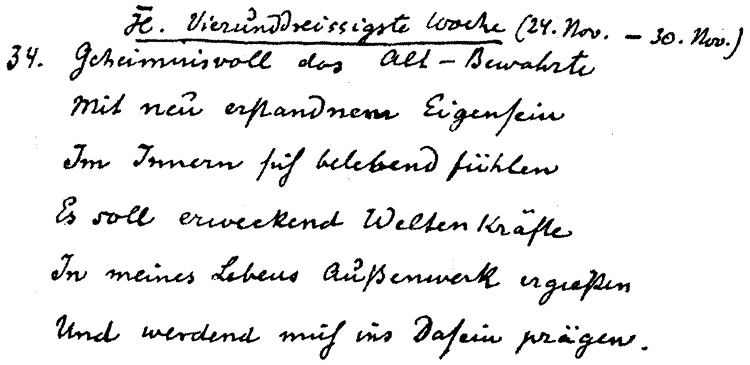 H. Vierunddreissigste Woche (24. Nov. – 30. Nov.)
34. Geheimnisvoll das Alt-Bewahrte
Mit neu erstandnem Eigensein
Im Innern sich belebend fühlen
Es soll erweckend Weltenkräfte
In meines Lebens Außenwerk ergießen
Und werdend mich ins Dasein prägen.